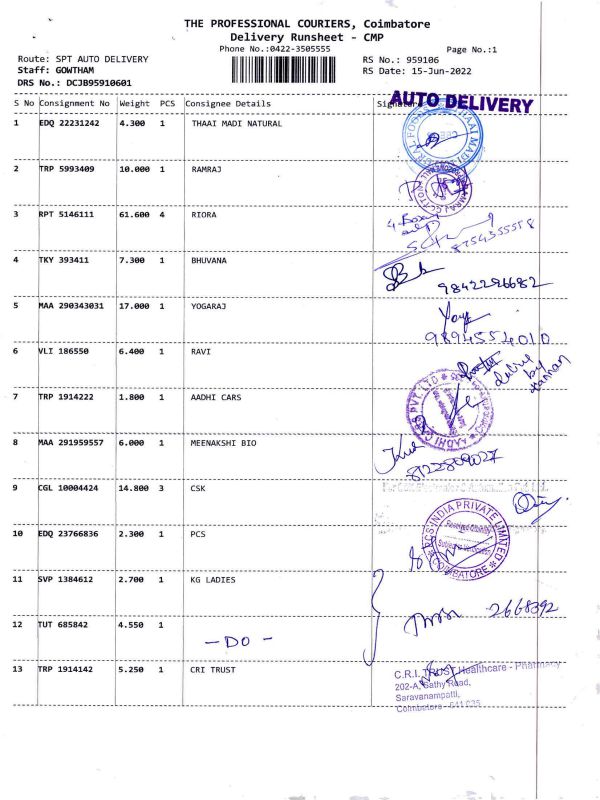 THE PROFESSIONAL COURIERS, Coimbatore
Delivery Runsheet - CMP
Phone No.:0422-3505555
Page No.:1
Route: SPT AUTO DELIVERY
RS No.: 959106
Staff: GOWTHAM
RS Date: 15-Jun-2022
DRS No.: DCJB95910601
AUTO DELIVERY
S No Consignment No Weight PCS Consignee Details Signature
1 EDQ 22231242 4.300 1 THAAI MADI NATURAL
2 TRP 5993409 10.000 1 RAMRAJ
3 RPT 5146111 61.600 4 RIORA
8754355558
4 TKY 393411 7.300 1 BHUVANA
9842296682
5 MAA 290343031 17.000 1 YOGARAJ
9894554010
6 VLI 186550 6.400 1 RAVI
by
7 TRP 1914222 1.800 1 AADHI CARS
AADHI CARS PVT. LTD
8 MAA 291959557 6.000 1 MEENAKSHI BIO
8122809027
9 CGL 10004424 14.800 3 CSK
10 EDQ 23766836 2.300 1 PCS
PCS INDIA PRIVATE LIMITED
COIMBATORE
11 SVP 1384612 2.700 1 KG LADIES
2668392
12 TUT 685842 4.550 1
- DO -
13 TRP 1914142 5.250 1 CRI TRUST
C.R.I. TRUST Healthcare - Pharmacy
202-A, Sathy Road,
Saravanampatti,
Coimbatore - 641 035